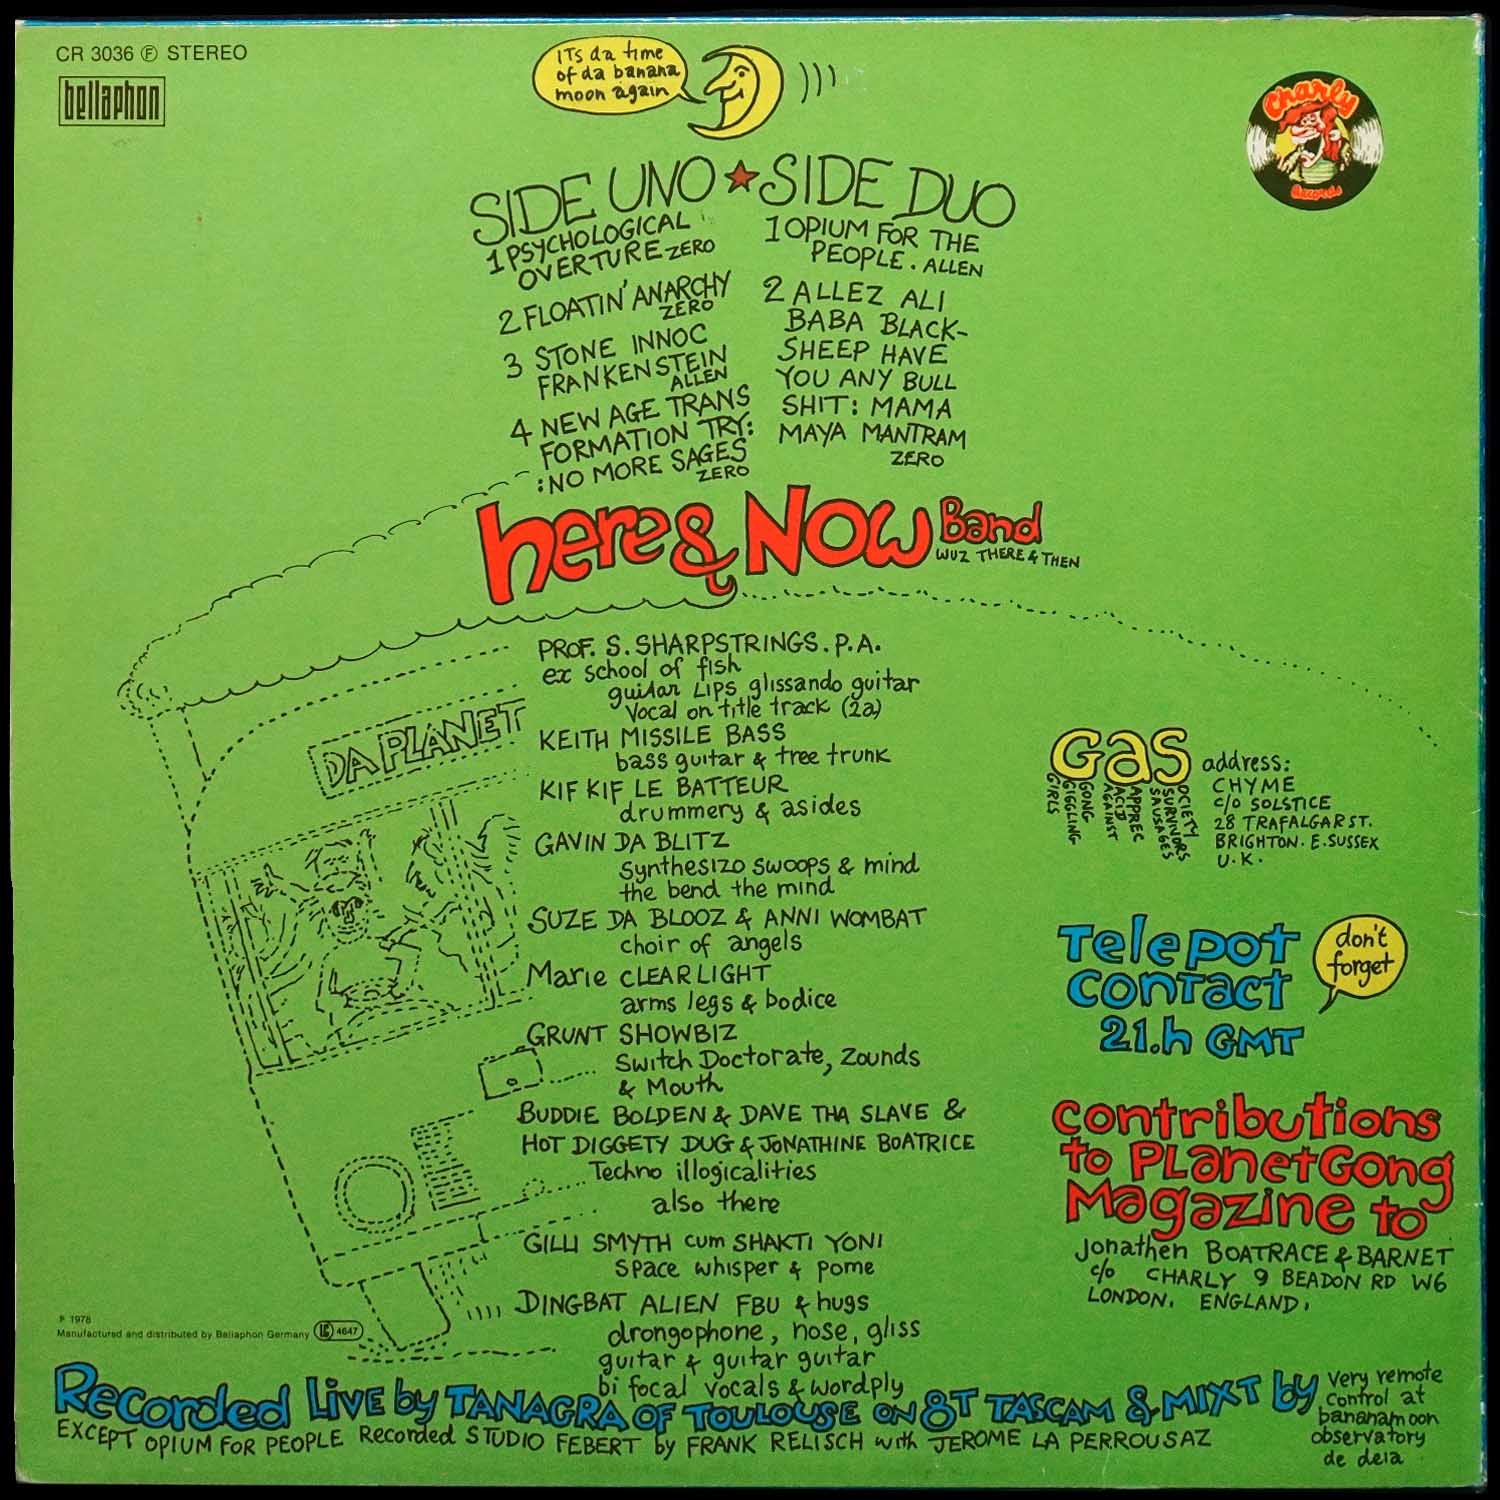 CR 3036 Ⓕ STEREO
bellaphon
ITs da time
of da banana
moon again
Charly
Records
SIDE UNO ★ SIDE DUO
1 PSYCHOLOGICAL
OVERTURE ZERO
2 FLOATIN' ANARCHY
ZERO
3 STONE INNOC
FRANKENSTEIN
ALLEN
4 NEW AGE TRANS
FORMATION TRY:
:NO MORE SAGES
ZERO
1 OPIUM FOR THE
PEOPLE. ALLEN
2 ALLEZ ALI
BABA BLACK-
SHEEP HAVE
YOU ANY BULL
SHIT: MAMA
MAYA MANTRAM
ZERO
here & NOW Band
WUZ THERE & THEN
PROF. S. SHARPSTRINGS. P.A.
ex school of fish
guitar LIPS glissando guitar
Vocal on title track (2a)
KEITH MISSILE BASS
bass guitar & tree trunk
KIF KIF LE BATTEUR
drummery & asides
GAVIN DA BLITZ
synthesizo swoops & mind
the bend the mind
SUZE DA BLOOZ & ANNI WOMBAT
choir of angels
Marie CLEARLIGHT
arms legs & bodice
GRUNT SHOWBIZ
Switch Doctorate, Zounds
& Mouth
BUDDIE BOLDEN & DAVE THA SLAVE &
HOT DIGGETY DUG & JONATHINE BOATRICE
Techno illogicalities
also there
GILLI SMYTH cum SHAKTI YONI
space whisper & pome
DINGBAT ALIEN FBU & hugs
drongophone, nose, gliss
guitar & guitar guitar
bi focal vocals & wordply
DA PLANET
Gas
GONG
GIGGLING
GIRLS
AGAINST
ACID
APPREC
SOCIETY
SURVIVORS
SAUSAGES
address:
CHYME
c/o SOLSTICE
28 TRAFALGAR ST.
BRIGHTON. E. SUSSEX
U.K.
Telepot
contact
21.h GMT
don't
forget
contributions
to PLanetGong
Magazine to
Jonathen BOATRACE & BARNET
c/o CHARLY 9 BEADON RD W6
LONDON. ENGLAND.
℗ 1978
Manufactured and distributed by Bellaphon Germany LC 4647
Recorded Live by TANAGRA OF TOULOUSE ON 8T TASCAM & MIXT by
very remote
control at
bananamoon
observatory
de deia
EXCEPT OPIUM FOR PEOPLE Recorded STUDIO FEBERT by FRANK RELISCH with JEROME LA PERROUSAZ